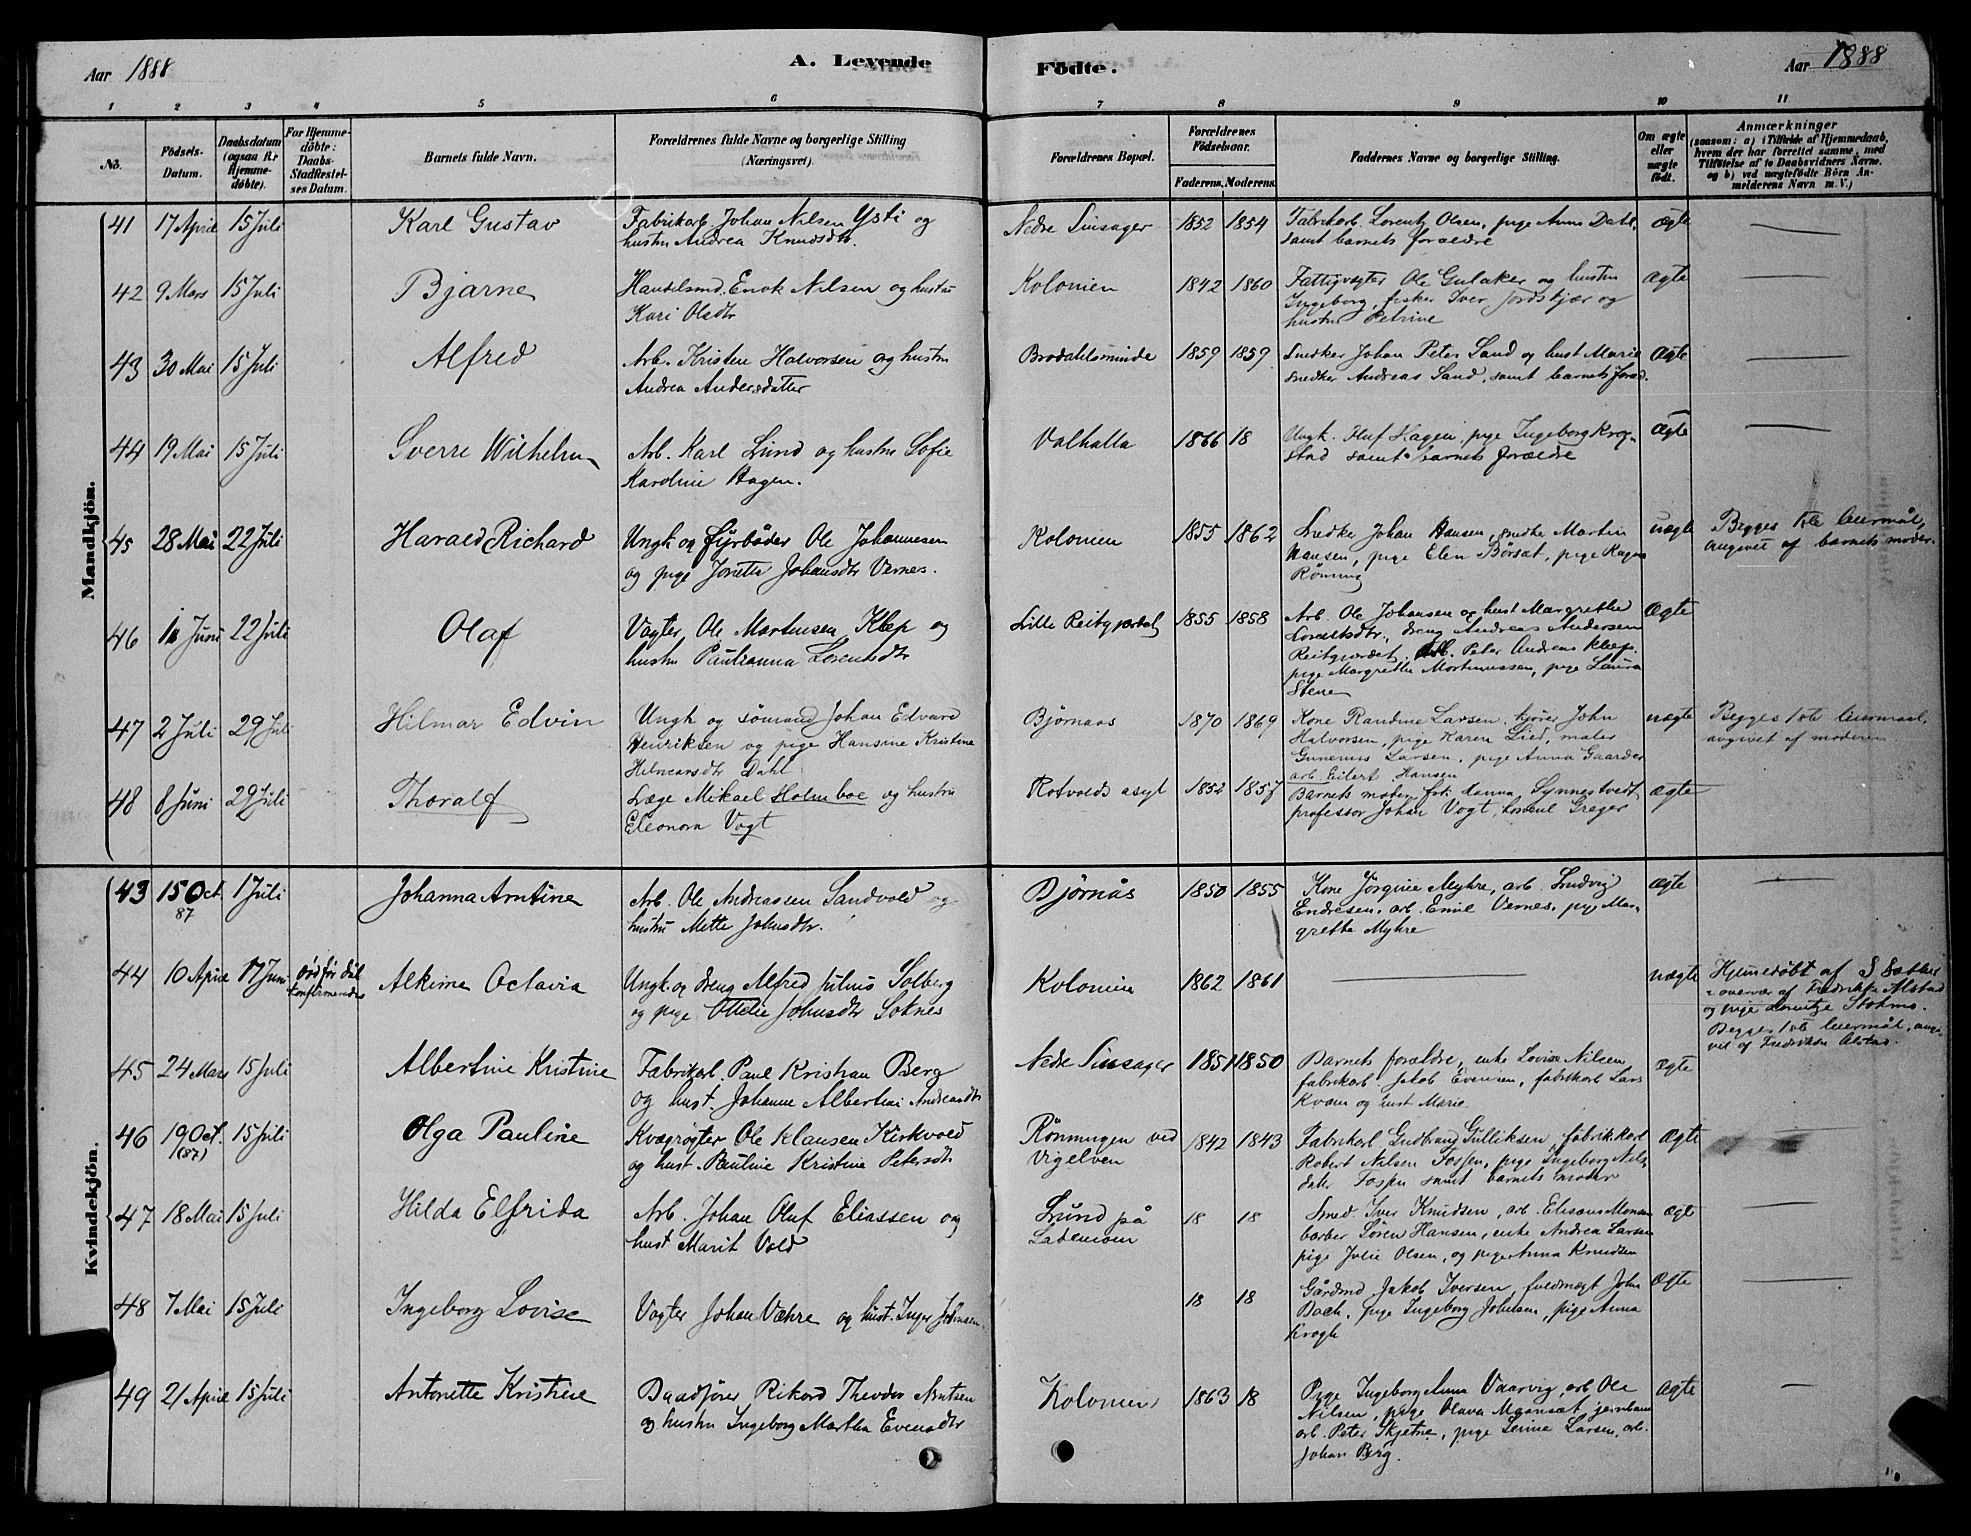 Aar 1888
A. Levende
Födte.
Aar 1888
1 2 3 4 5 6 7 8 9 10 11
No.
Födsels-Datum.
Daabsdatum (ogsaa f. r Hjemme-döbte).
For Hjemme-döbte: Daabs-Stadfæstel-ses Datum.
Barnets fulde Navn.
Forældrenes fulde Navne og borgerlige Stilling (Næringsvei).
Forældrenes Bopæl.
Forældrenes Födselsaar.
Faderens. Moderens.
Faddernes Navne og borgerlige Stilling.
Om ægte eller uægte födt.
Anmærkninger
(saasom: a) i Tilfælde af Hjemmedaab,
hvem der har forrettet samme, med
Tilföielse af to Daabsvidners Navne.
og b) ved uægtefödte Börn An-
melderens Navn m. V.)
Mandkjön.
41 17 April 15 Juli Karl Gustav
Fabrikarb. Johan Nilsen Ysti og
hustru Andrea Knudsdtr.
Nedre Linsager 1852 1854
Fabrikarb. Lorentz Olsen, pige Anna Dahl,
samt barnets forældre
ægte
42 9 Mars 15 Juli Bjarne
Handelsmd. Enok Nilsen og hustru
Kari Olsdtr
Kolonien 1842 1860
Fattigvogter Ole Gulaker og hustru
Ingeborg, fisker Iver Jordskjær og
hustru Petrine
Ægte
43 30 Mai 15 Juli Alfred
Arb. Kristen Halvorsen og hustru
Andrea Andersdatter
Brodahlsminde 1859 1859
Snedker Johan Peter Sand og hust Marie
snedker Andreas Sand, samt barnets foræd.
Ægte
44 19 Mai 15 Juli Sverre Wilhelm
Arb. Karl Lund og hustru Sofie
Karoline Hagen.
Valhalla 1866 18
Ungk. Oluf Hagen, pige Ingeborg Krog-
stad samt barnets forældre
Ægte
45 28 Mai 22 Juli Harald Richard
Ungk og fyrbøder Ole Johannesen
og pige Jonetta Johansdtr Vernes.
Kolonien 1855 1862
Snedker Johan Hansen, snedker Martin
Hansen, pige Elen Børsat, pige Ragna
Rönning
uægte
Begges 1ste leiermål,
angivet af barnets moder.
46 1 Juni 22 Juli Olaf
Vogter Ole Martinsen Klep og
hustru Paulianna Lorentsdtr
Lille Reitgjerdet 1855 1858
Arb. Ole Johansen og hust Margrethe
Lorentsdtr., dreng Andreas Andersen
Reitgjerdet, Arb. Peter Andreas Klep,
pige Margrethe Mortinussen, pige Laura
Stene
Ægte
47 2 Juli 29 Juli Hilmar Edvin
Ungk og sömand Johan Edvard
Henriksen og pige Hansine Kristine
Hilmarsdtr Dahl
Bjørnaas 1870 1869
Kone Randine Larsen, kjører John
Halvorsen, pige Karen Lied, maler
Gunerius Larsen, pige Anna Gaarder
arb Eilert Hansen
uægte
Begges 1ste leiermaal,
angivet af moderen
48 8 Juni 29 Juli Thoralf
Læge Mikael Holmboe og hustru
Eleonora Vogt
Rotvolds asyl 1852 1857
Barnets moder, frk Hanna Synnestvedt,
professor Johan Vogt, konsul Greger
ægte
Kvindekjön.
43 15 Oct. 87 1 Juli Johanna Arntine
Arb. Ole Andreassen Sandvold og
hustru Mette Johnsdtr.
Bjørnås 1850 1855
Kone Jörgine Myhre, arb. Ludvig
Endresen, arb. Emil Vernes, pige Mar-
grethe Myhre
Ægte
44 10 April 17 Juni død før dåb konfirmeredes Alkime Octavia
Ungk. og dreng Alfred Julius Solberg
og pige Ottelie Johnsdtr Soknes
Kolonien 1862 1861
uægte
Hjemmedøbt af
i overvær af Fredrikke Alstad
og pige
Begges 1ste leiermål, angi-
vet af Fredrikke Alstad.
45 24 Mars 15 Juli Albertine Kristine
Fabrikarb. Paul Kristian Berg
og hust. Johanne Albertine Andreasdtr
Nedre Linsager 1851 1850
Barnets forældre, enke Lovise Nilsen
fabrikarb Jakob Evensen, fabrikarb Lars
Kvam og hust Marie.
Ægte
46 19 Oct. (87) 15 Juli Olga Pauline
Kvægrøgter Ole Klausen Kirkvold
og hust. Pauline Kristine Petersdtr
Rönningen ved
Vigelven
1842 1843
Fabrikarb Gudbrand Gulliksen, fabrikkarb
Robert Nilsen Fossen, pige Ingeborg Nils-
dater Fossen samt barnets moder
Ægte
47 18 Mai 15 Juli Hilda Elfrida
Arb. Johan Oluf Eliassen og
hust Marit Vold
Lund på
Lademoen
18 18
Smed Iver Knudsen, arb. Elisæus Monsen
barber Sören Hansen, enke Andrea Larsen
pige Julie Olsen, og pige Anna Knudsen
Ægte
48 7 Mai 15 Juli Ingeborg Lovise
Vogter Johan Væhre og hust. Inger Johnsen.
18 18
Gårdmd Jakob Iversen, fuldmægt John
Bach, pige Ingeborg Johnsen, pige Anna
Krogh
Ægte
49 21 April 15 Juli Antonette Kristine
Baadfører Rikard Theodor Arntsen
og hustru Ingeborg Martha Evensdtr
Kolonien 1863 18
Pige Ingeborg Anna Vaarvig, arb. Ole
Nilsen, pige Olava Maansæt, jernbane
arb. Peter Skjetne, pige Lenine Larsen, arb.
Johan Berg.
Ægte